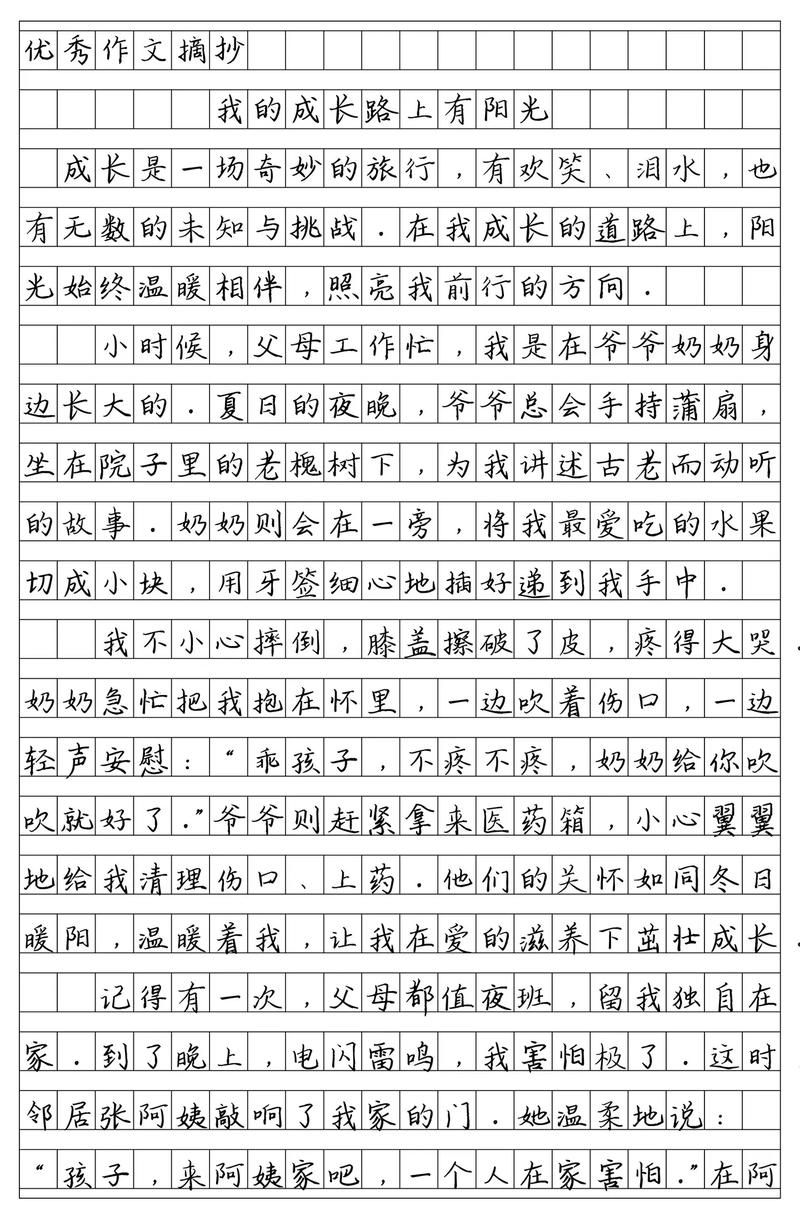 优秀作文摘抄
我的成长路上有阳光
成长是一场奇妙的旅行，有欢笑、泪水，也
有无数的未知与挑战．在我成长的道路上，阳
光始终温暖相伴，照亮我前行的方向．
小时候，父母工作忙，我是在爷爷奶奶身
边长大的．夏日的夜晚，爷爷总会手持蒲扇，
坐在院子里的老槐树下，为我讲述古老而动听
的故事．奶奶则会在一旁，将我最爱吃的水果
切成小块，用牙签细心地插好递到我手中．
我不小心摔倒，膝盖擦破了皮，疼得大哭．
奶奶急忙把我抱在怀里，一边吹着伤口，一边
轻声安慰：“乖孩子，不疼不疼，奶奶给你吹
吹就好了．”爷爷则赶紧拿来医药箱，小心翼翼
地给我清理伤口、上药．他们的关怀如同冬日
暖阳，温暖着我，让我在爱的滋养下茁壮成长．
记得有一次，父母都值夜班，留我独自在
家．到了晚上，电闪雷鸣，我害怕极了．这时
邻居张阿姨敲响了我家的门．她温柔地说：
“孩子，来阿姨家吧，一个人在家害怕．”在阿